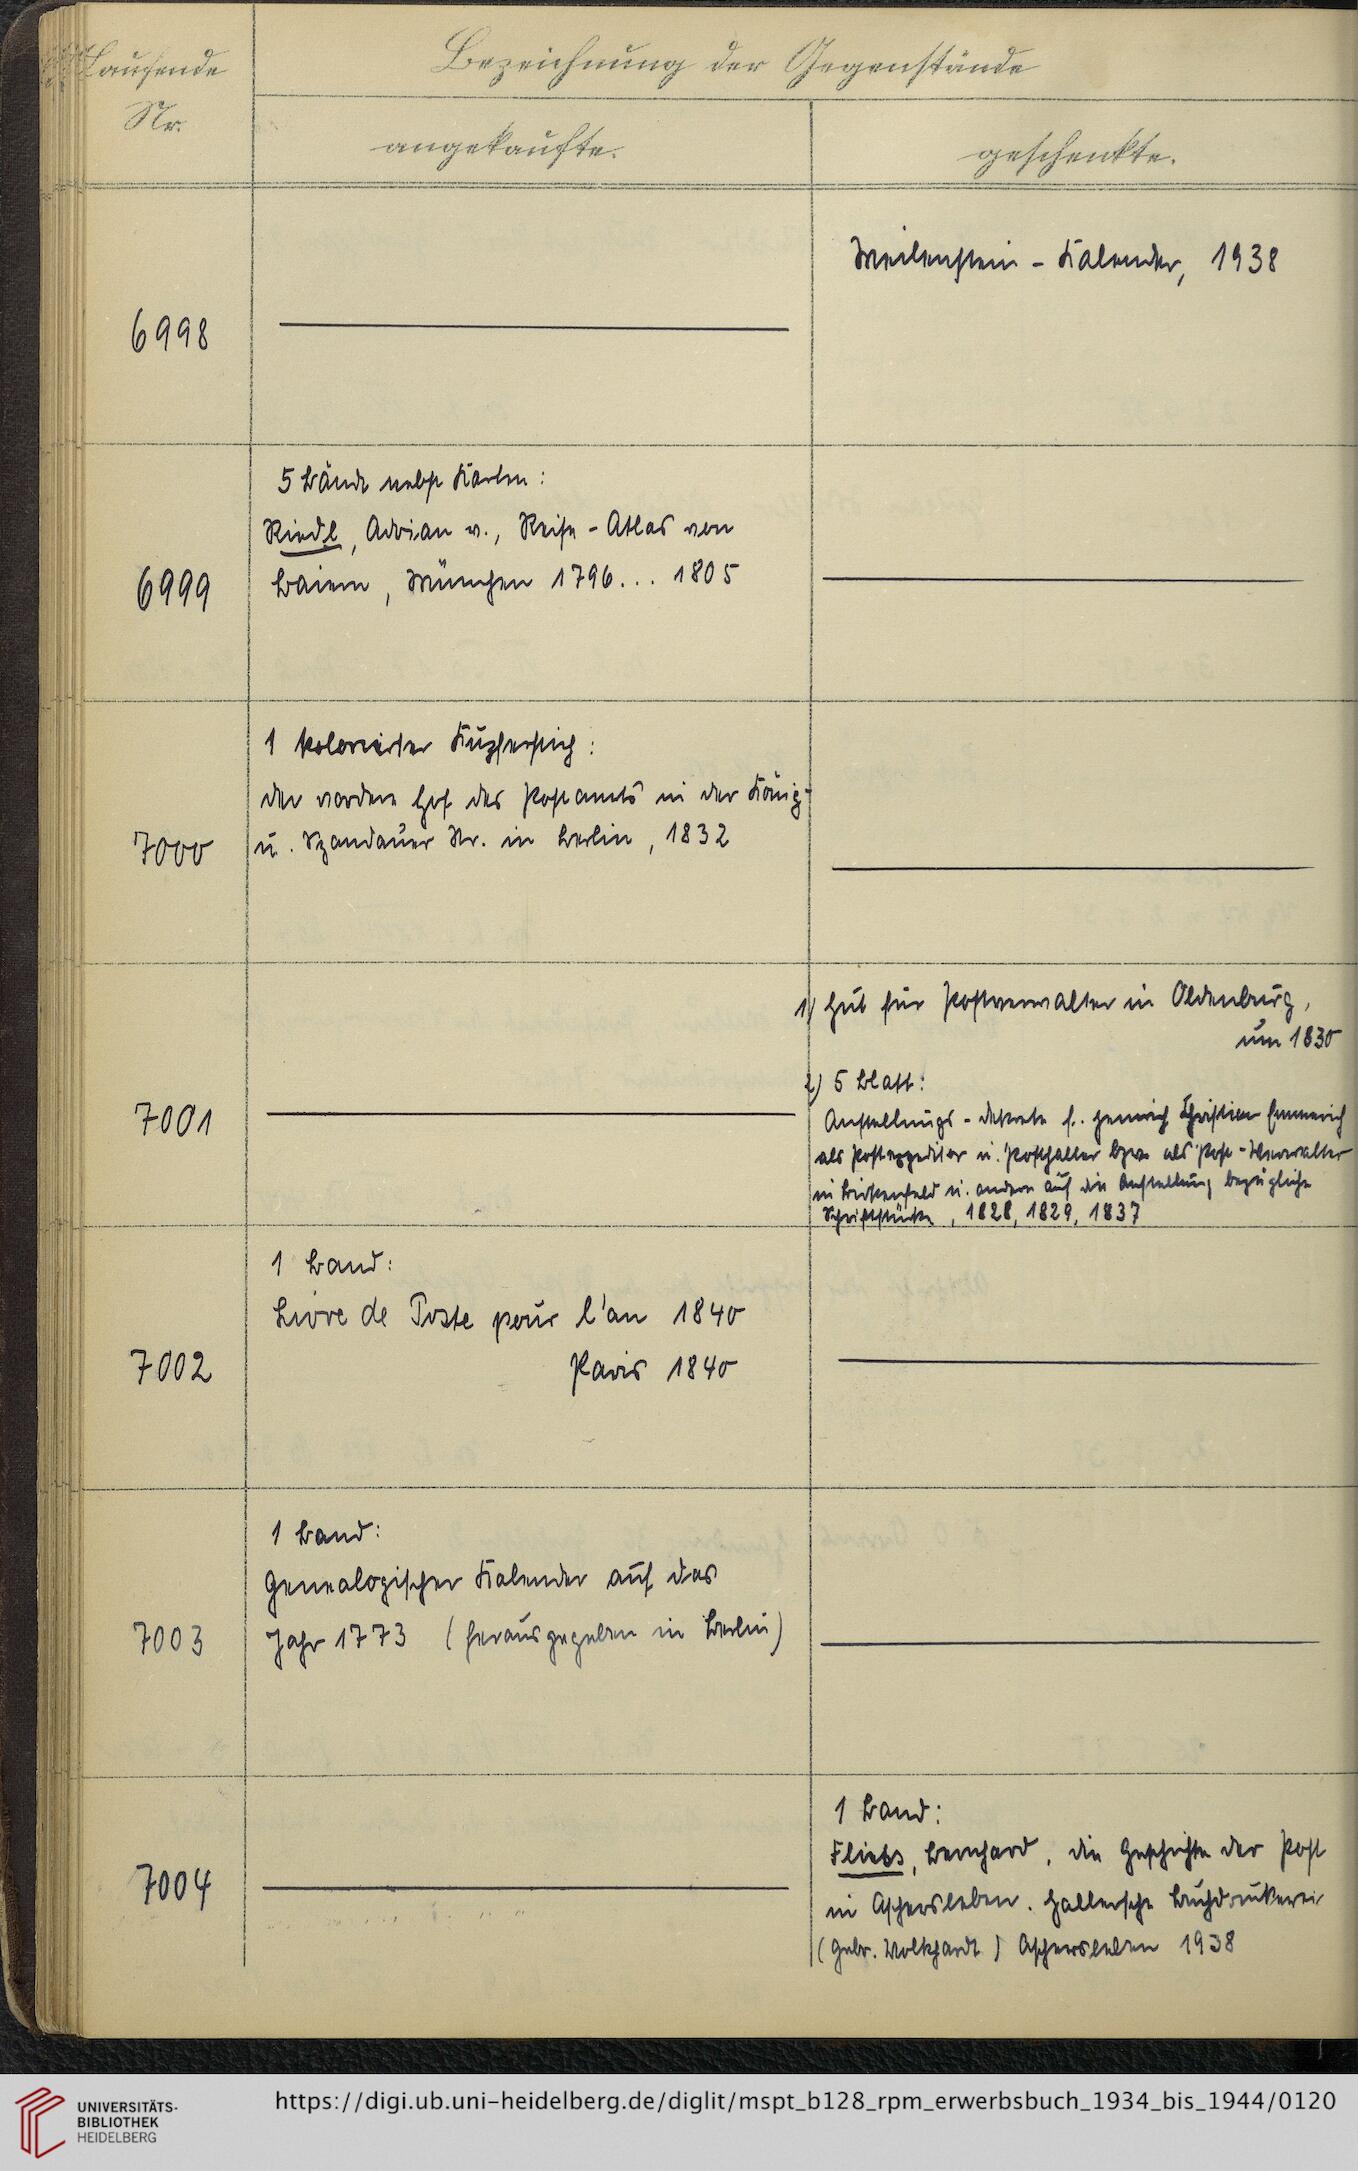 Laufende
Nr.
Bezeichnung der Gegenstände
angekaufte.
geschenkte.
6998
Meilenstein - Kalender, 1938
6999
5 Bände nebst Karten:
Riedl, Adrian v., Reise - Atlas von
Baiern, München 1796... 1805
7000
1 kolorierter Kupferstich:
der vordere Hof des Postamts in der König-
u. Spandauer Str. in Berlin, 1832
7001
1) Hut für Postverwalter in Oldenburg,
um 1830
2) 5 Blatt:
Anstellungs - dekrete f. Heinrich Christian Emmerich
als Postexpeditor u. Posthalter bzw. als Post - Verwalter
in Birkenfeld u. andere auf die Anstellung bezügliche
Schriftstücke, 1828, 1829, 1837
7002
1 Band:
Livre de Poste pour l'an 1840
Paris 1840
7003
1 Band:
Genealogischer Kalender auf das
Jahr 1773 (herausgegeben in Berlin)
7004
1 Band:
Flietz, Bernhard, die Geschichte der Post
in Aschersleben. Hallersche Buchdruckerei
(Gebr. Volkhardt) Aschersleben 1938
UNIVERSITÄTS-
BIBLIOTHEK
HEIDELBERG
https://digi.ub.uni-heidelberg.de/diglit/mspt_b128_rpm_erwerbsbuch_1934_bis_1944/0120